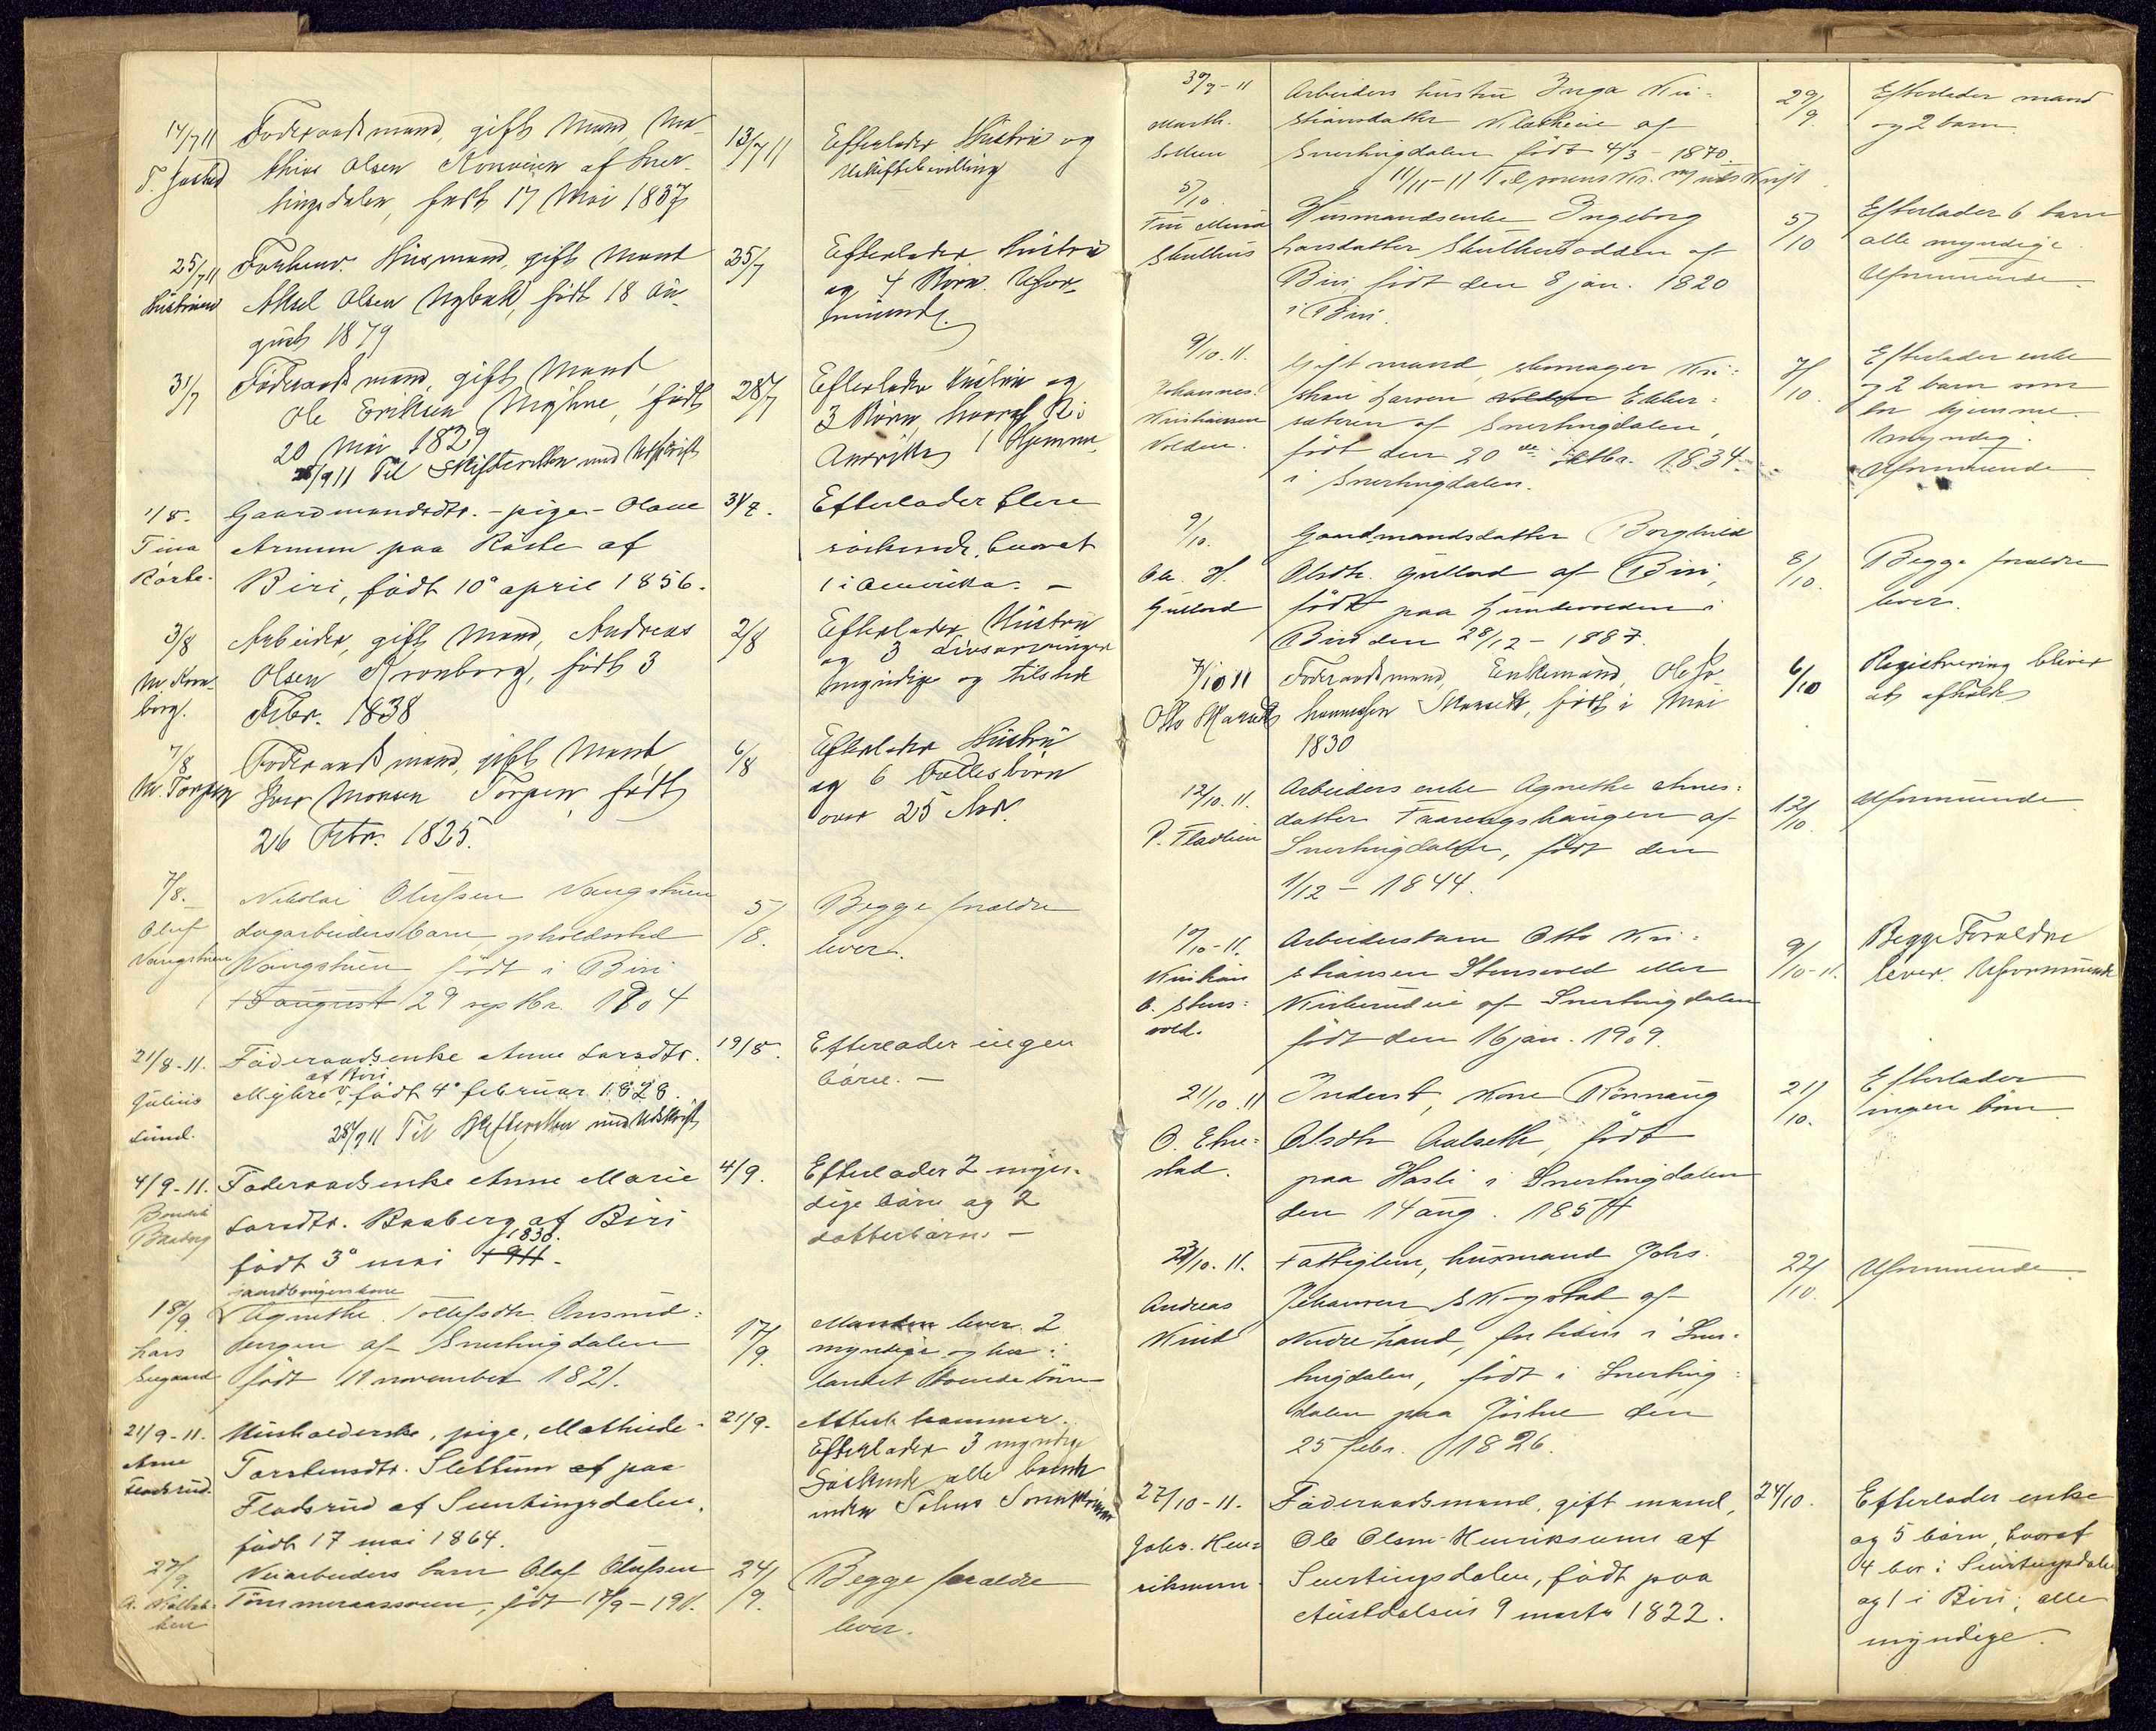 14/7 11 Føderaadsmand, gift Mand Ma- 13/7 11 Efterlader Hustru og
thias Olsen af Sner- Uskiftebevilling
tingsdalen, født 17 Mai 1837
25/7 11 Forhenv. Husmand, gift Mand 25/7 Efterlader Hustru
Hustruen Aksel Olsen født 18 Au- og 4 Børn. Ufor-
gust 1879 muende.
31/7 Føderaadsmand, gift Mand 28/7 Efterlader Hustru og
Ole Eriksen Myhre, født 3 Børn hvoraf 2 i
20 Mai 1829 Amerika 1 Hjemme
/9 11 Til Skifteretten med Udskrift
1/8. Gaardmandsdtr. - pige - Olave 31/7. Efterlader flere
Tina paa Røste af søskende, hvoraf
Røste. Biri, født 10de april 1856. 1 i Amerika. -
3/8 Arbeider, gift Mand, Andreas 2/8 Efterlader Hustru
Olsen Kronborg, født 3 og 3 Livsarvinger
borg. Febr. 1838 myndige og tilstede
7/8 Føderaadsmand, gift Mand 6/8 Efterlader Hustru
M. Torpen Monsen Torpen, født og 6 Fællesbørn
26 Febr. 1825. over 25 Aar.
7/8. Nikolai Olufsen Vangstuen 5/8. Begge forældre
Oluf dagarbeidersbarn, opholdssted lever.
Vangstuen Vangstuen født i Biri
13 august 29 septbr. 1904
21/8-11. Føderaadsenke Anne Larsdtr. 19/8. Efterlader ingen
af Biri børn. -
Julius Myhre, født 4de februar 1828.
Lund. 28/9 11 Til Skifteretten med Udskrift
4/9-11. Føderaadsenke Anne Marie 4/9. Efterlader 2 myn-
Larsdtr. Braaberg af Biri dige børn og 2
1830. datterbørn. -
født 3de mai 1911.
gaardbrugerskone
18/9. Agnethe Tollefsdtr. 17/9. Manden lever. 2
Lars bergen af Snertingdalen myndige og her i
født 19 november 1821. landet boende børn
21/9-11. Husholderske, pige, Mathilde 21/9.
Arne Torstensdtr. Slettum af paa Efterlader 3 myndige
Fladsrud. Fladsrud af Snertingsdalen. Søskende alle
født 17 mai 1864.
27/9. Veiarbeiders barn Olaf Olufsen 24/9. Begge forældre
født 17/9-1911. lever.
30/9-11 Arbeiders hustru Inga Kri- 29/9 Efterlader mand
Marth. stiansdatter af og 2 barn.
Snertingdalen født 4/3-1870.
11/11-11
5/10. Husmandsenke Ingeborg 5/10 Efterlader 6 barn
Larsdatter Skulhusodden af alle myndige.
Skulhus Biri, født den 8 jan. 1820 Uformuende.
i Biri.
9/10.11. Gift mand, skomager Kri- 7/10. Efterlader enke
Johannes stian Larsen Volden Ekker- og 2 barn som
Kristiansen sæteren af Snertingdalen, er hjemme.
Volden. født den 20de oktbr. 1834. Umyndig.
i Snertingdalen. Uformuende
9/10. Gaardmandsdatter Borghild 8/10. Begge forældre
Ole H. Olsdtr. Gullord af Biri, lever.
Gullord født paa i
Biri den 28/12-1887.
7/10 11 Føderaadsmand, Enkemand, Ole Jo- 6/10 Registrering bliver
Otto hannesen født i Mai at afholde
1830
12/10.11. Arbeiders enke Agnethe 12/10. Uformuende
P. Fladlien datter Faarengshaugen af
Snertingdalen, født den
1/12-1844.
10/10-11. Arbeidersbarn Otto Kri- 9/10-11. Begge Forældre
Kristian stiansen Stensvold eller lever. Uformuende
O. Stens- af Snertingdalen
vold. født den 16 jan. 1909.
21/10.11 Inderst, kone Rønnaug 21/10. Efterlader
O. Olsdtr. Aalseth, født ingen børn
stad. paa Hasli i Snertingdalen
den 14 aug. 1854
23/10.11. Fattiglem, husmand Johs. 22/10. Uformuende.
Andreas Johansen Skogstad af
Kind Nordre Land, for tiden i Sner-
tingdalen, født i Snerting-
dalen paa den
25 febr. 1826.
27/10-11. Føderaadsmand, gift mand, 24/10. Efterlader enke
Johs. Hen- Ole Olsen Henriksrum af og 5 børn, hvoraf
riksrum. Snertingsdalen, født paa 4 bor i Snertingsdalen
9 marts 1822. og 1 i Biri; alle
myndige.